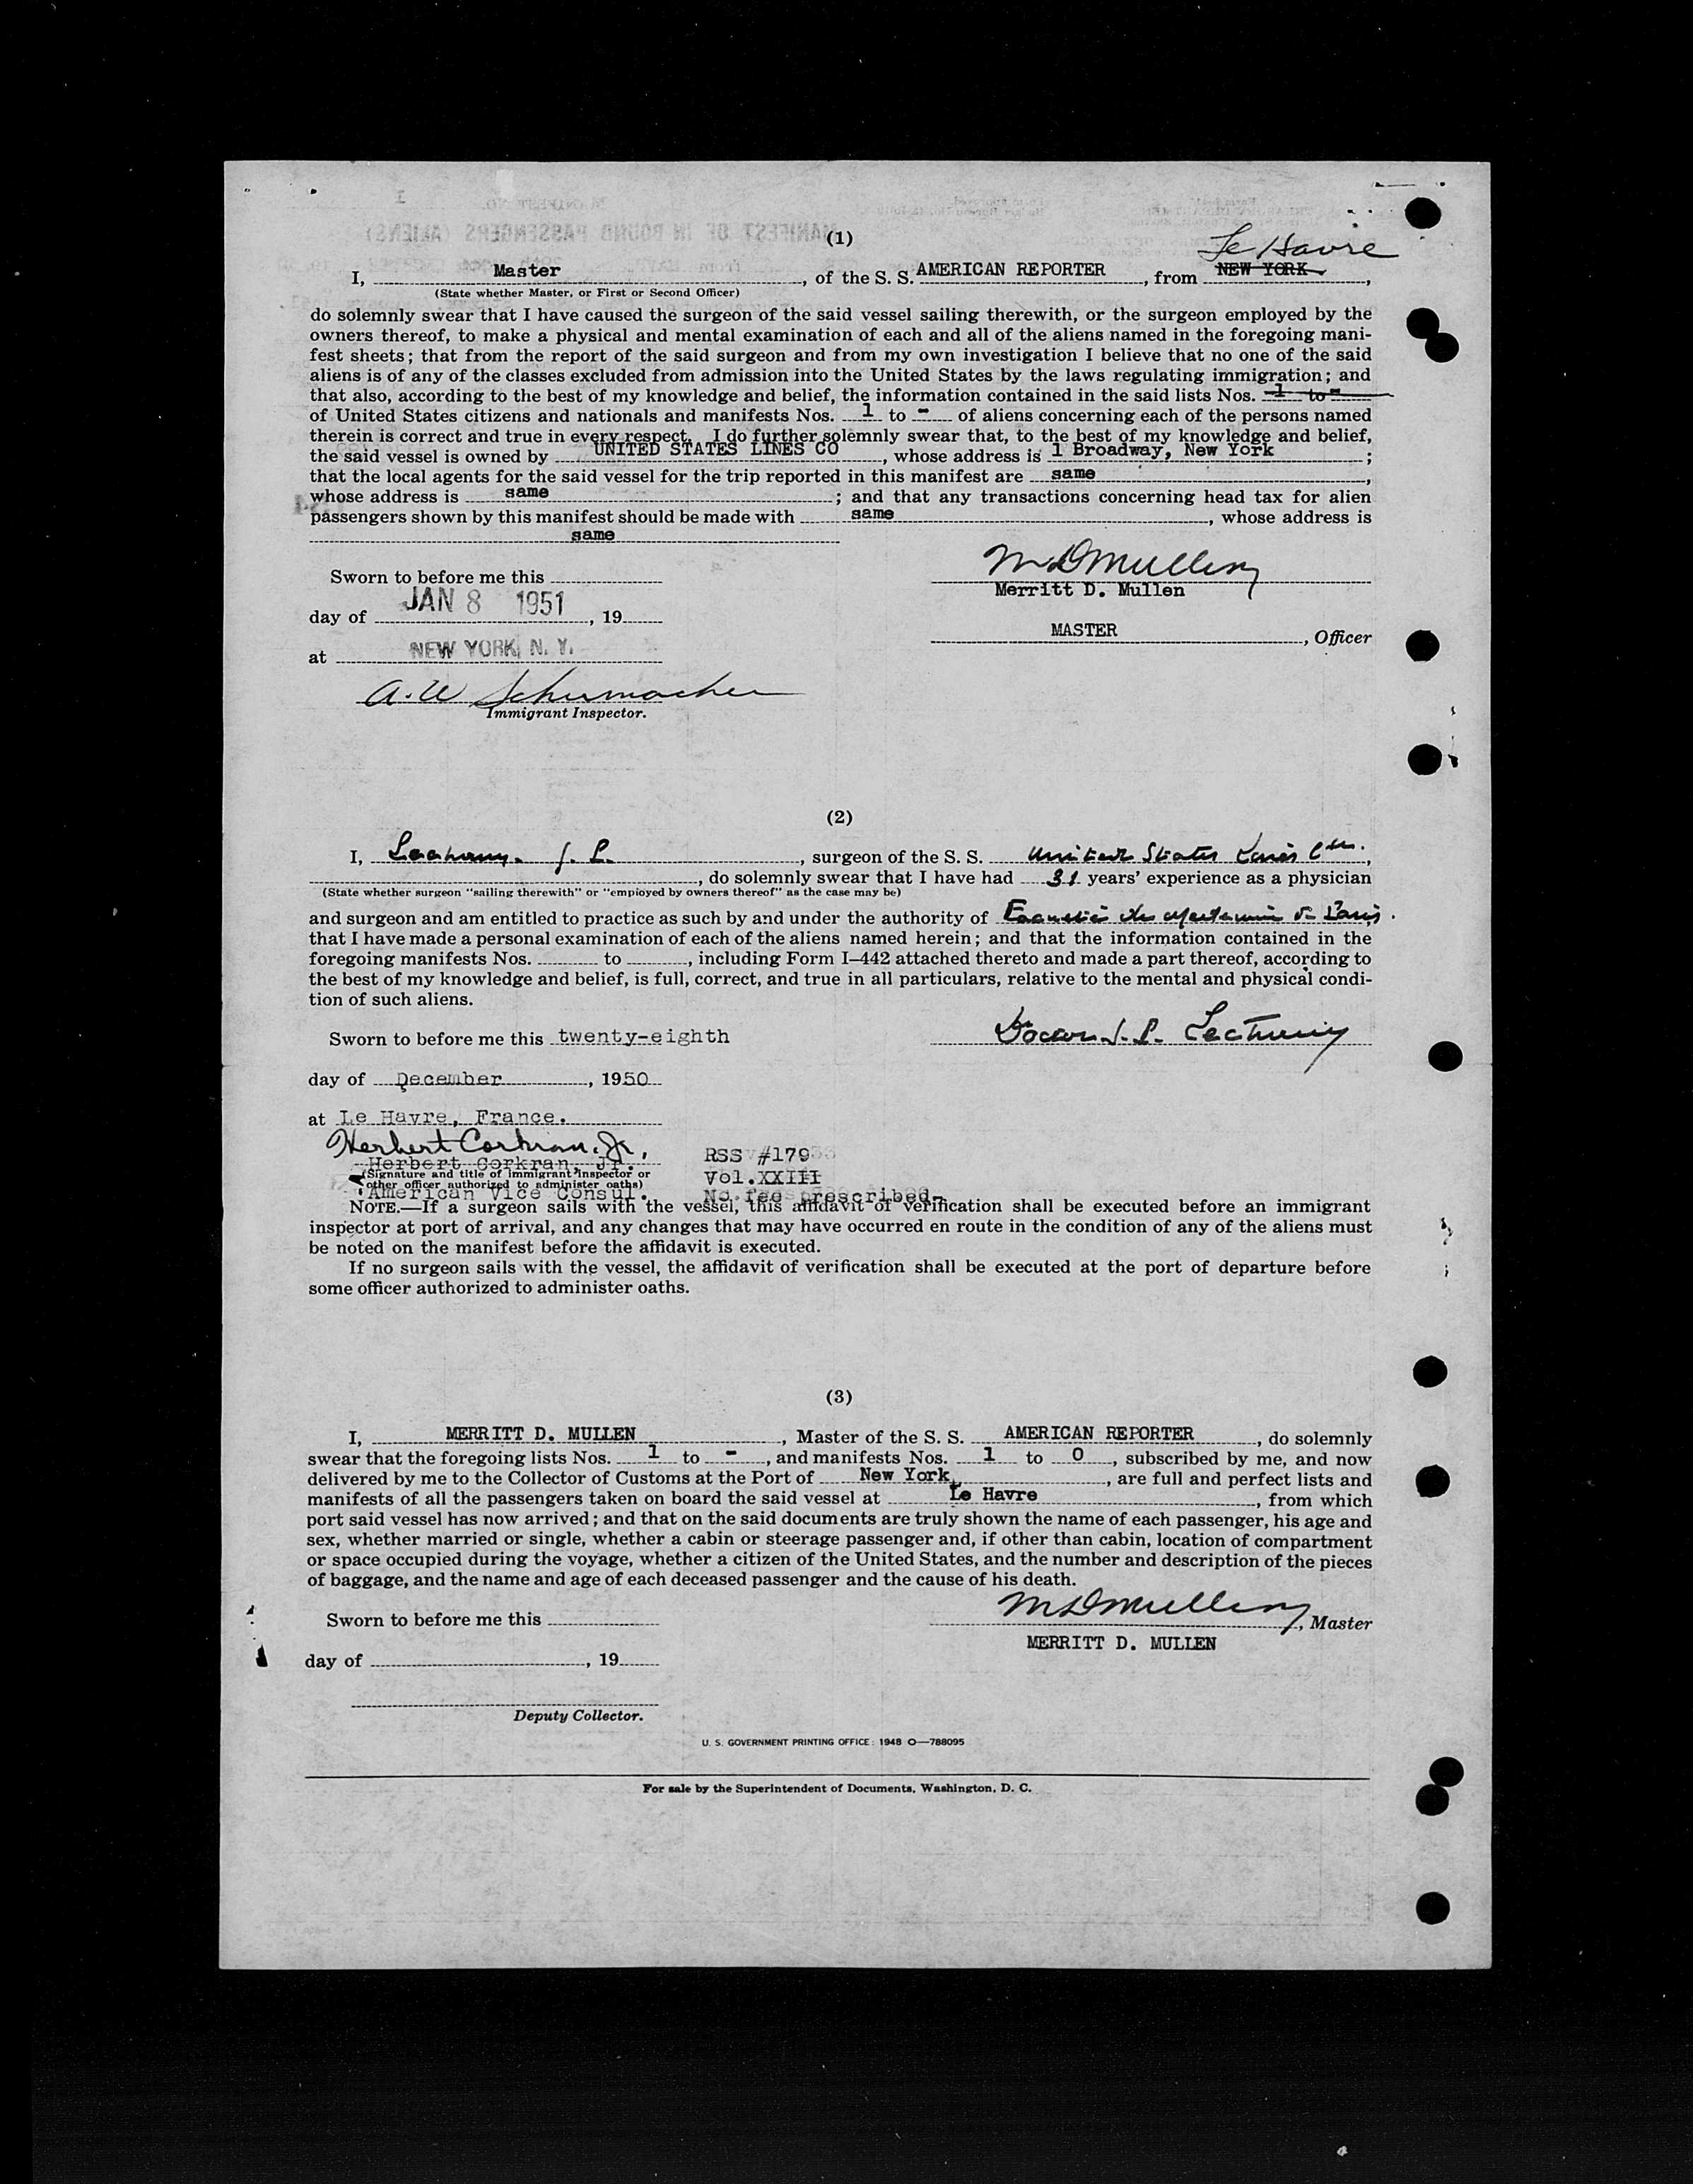 (1)
Le Havre
I, Master, of the S. S. AMERICAN REPORTER, from NEW YORK,
(State whether Master, or First or Second Officer)
do solemnly swear that I have caused the surgeon of the said vessel sailing therewith, or the surgeon employed by the
owners thereof, to make a physical and mental examination of each and all of the aliens named in the foregoing mani-
fest sheets; that from the report of the said surgeon and from my own investigation I believe that no one of the said
aliens is of any of the classes excluded from admission into the United States by the laws regulating immigration; and
that also, according to the best of my knowledge and belief, the information contained in the said lists Nos. 1 to -
of United States citizens and nationals and manifests Nos. 1 to - of aliens concerning each of the persons named
therein is correct and true in every respect. I do further solemnly swear that, to the best of my knowledge and belief,
the said vessel is owned by UNITED STATES LINES CO, whose address is 1 Broadway, New York;
that the local agents for the said vessel for the trip reported in this manifest are same,
whose address is same; and that any transactions concerning head tax for alien
passengers shown by this manifest should be made with same, whose address is
same
M D Mullen
Sworn to before me this
Merritt D. Mullen
day of JAN 8 1951, 19
MASTER, Officer
at NEW YORK, N. Y.
A. W Schumacher
Immigrant Inspector.
(2)
I, J. L., surgeon of the S. S. United States Lines,
, do solemnly swear that I have had 31 years' experience as a physician
(State whether surgeon "sailing therewith" or "employed by owners thereof" as the case may be)
and surgeon and am entitled to practice as such by and under the authority of Paris.
that I have made a personal examination of each of the aliens named herein; and that the information contained in the
foregoing manifests Nos. to , including Form I-442 attached thereto and made a part thereof, according to
the best of my knowledge and belief, is full, correct, and true in all particulars, relative to the mental and physical condi-
tion of such aliens.
Sworn to before me this twenty-eighth
day of December, 1950
at Le Havre, France.
Herbert Corkran, Jr.
Herbert Corkran, Jr. RSS #179
(Signature and title of immigrant inspector or
other officer authorized to administer oaths) Vol. XXIII
American Vice Consul. No fee prescribed-
NOTE.—If a surgeon sails with the vessel, this affidavit of verification shall be executed before an immigrant
inspector at port of arrival, and any changes that may have occurred en route in the condition of any of the aliens must
be noted on the manifest before the affidavit is executed.
If no surgeon sails with the vessel, the affidavit of verification shall be executed at the port of departure before
some officer authorized to administer oaths.
(3)
I, MERRITT D. MULLEN, Master of the S. S. AMERICAN REPORTER, do solemnly
swear that the foregoing lists Nos. 1 to -, and manifests Nos. 1 to 0, subscribed by me, and now
delivered by me to the Collector of Customs at the Port of New York, are full and perfect lists and
manifests of all the passengers taken on board the said vessel at Le Havre, from which
port said vessel has now arrived; and that on the said documents are truly shown the name of each passenger, his age and
sex, whether married or single, whether a cabin or steerage passenger and, if other than cabin, location of compartment
or space occupied during the voyage, whether a citizen of the United States, and the number and description of the pieces
of baggage, and the name and age of each deceased passenger and the cause of his death.
M D Mullen, Master
Sworn to before me this
MERRITT D. MULLEN
day of , 19
Deputy Collector.
U. S. GOVERNMENT PRINTING OFFICE: 1948 O—788095
For sale by the Superintendent of Documents, Washington, D. C.